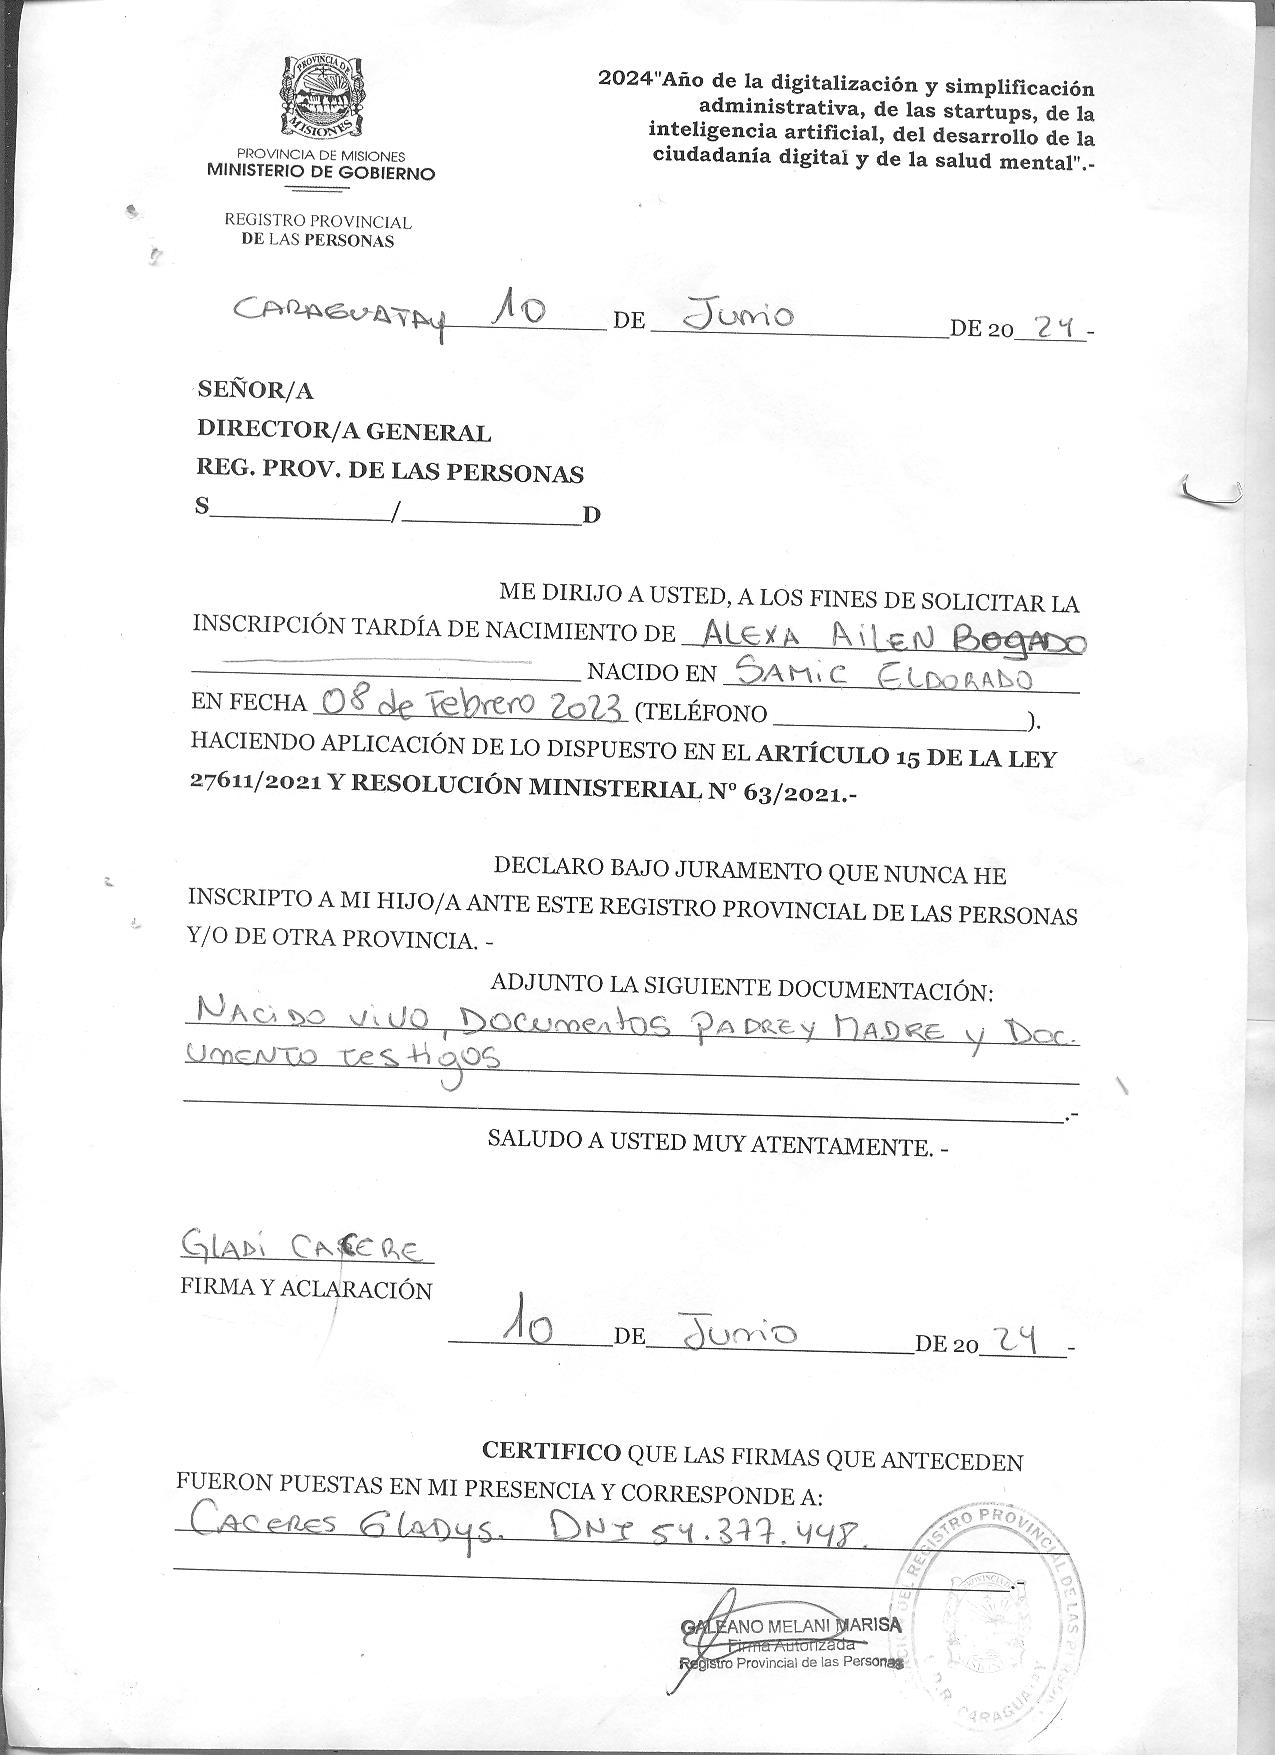 PROVINCIA DE
MISIONES
PROVINCIA DE MISIONES
MINISTERIO DE GOBIERNO
REGISTRO PROVINCIAL
DE LAS PERSONAS
2024"Año de la digitalización y simplificación
administrativa, de las startups, de la
inteligencia artificial, del desarrollo de la
ciudadanía digital y de la salud mental".-
CARAGUATAY 10 DE Junio DE 2024-
SEÑOR/A
DIRECTOR/A GENERAL
REG. PROV. DE LAS PERSONAS
S____________/____________D
ME DIRIJO A USTED, A LOS FINES DE SOLICITAR LA
INSCRIPCIÓN TARDÍA DE NACIMIENTO DE ALEXA AiLEN BOGADO
NACIDO EN SAMiC ELDORADO
EN FECHA 08 de Febrero 2023 (TELÉFONO ____________).
HACIENDO APLICACIÓN DE LO DISPUESTO EN EL ARTÍCULO 15 DE LA LEY
27611/2021 Y RESOLUCIÓN MINISTERIAL Nº 63/2021.-
DECLARO BAJO JURAMENTO QUE NUNCA HE
INSCRIPTO A MI HIJO/A ANTE ESTE REGISTRO PROVINCIAL DE LAS PERSONAS
Y/O DE OTRA PROVINCIA. -
ADJUNTO LA SIGUIENTE DOCUMENTACIÓN:
NACiDO ViVO, DOCUmentos PADRE y MADRE y Doc.
UMENTO testigos
.-
SALUDO A USTED MUY ATENTAMENTE. -
GLADi CACERE
FIRMA Y ACLARACIÓN
10 DE Junio DE 2024-
CERTIFICO QUE LAS FIRMAS QUE ANTECEDEN
FUERON PUESTAS EN MI PRESENCIA Y CORRESPONDE A:
CACERES GLADYS. DNI 54.377.448.
.-
GALEANO MELANI MARISA
Firma Autorizada
Registro Provincial de las Personas
DEL REGISTRO PROVINCIAL DE LAS PERSONAS
CARAGUATAY